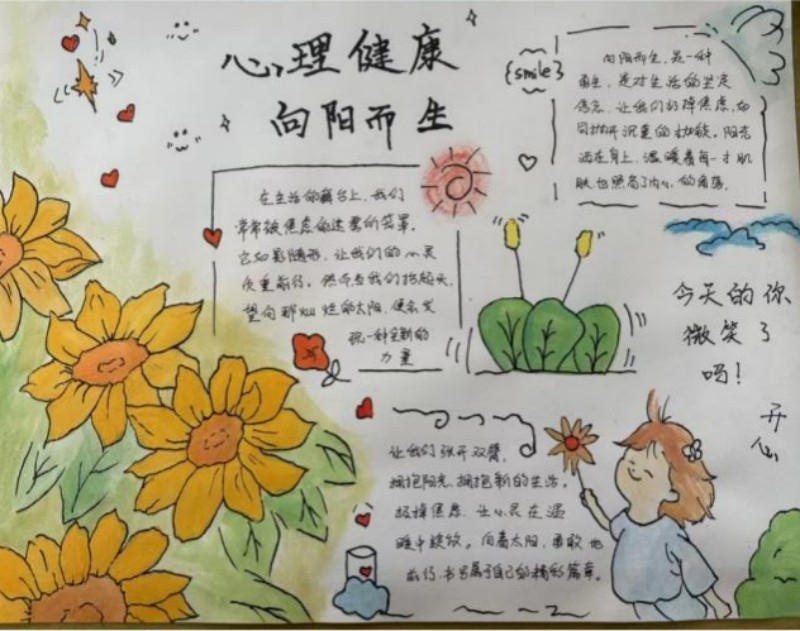 心理健康
向阳而生
{smile}
向阳而生，是一种
勇气，是对生活的坚定
信念，让我们扔掉焦虑，如
同抛开沉重的枷锁。阳光
洒在身上，温暖着每一寸肌
肤也照亮了内心的角落。
在生活的舞台上，我们
常常被焦虑的迷雾所笼罩。
它如影随形，让我们的心灵
负重前行。然而当我们抬起头，
望向那灿烂的太阳，便会发
现一种全新的
力量
今天的你
微笑了
吗！
开心
让我们张开双臂，
拥抱阳光，拥抱新的生活。
扔掉焦虑，让心灵在温
暖中绽放。向着太阳，勇敢地
前行，书写属于自己的精彩篇章。